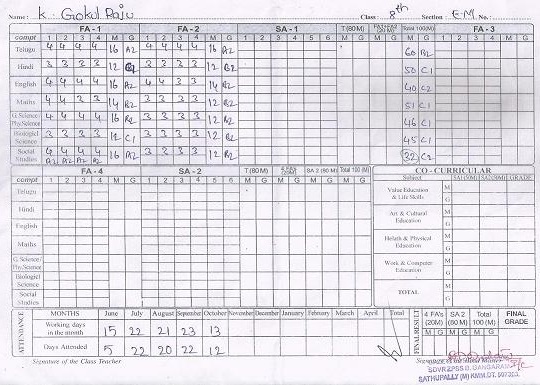 Name : K. Gokul Raju Class : 8th Section : E-M No. :
FA - 1 FA - 2 SA - 1 T (80 M) Total 100 (M) FA - 3
compt 1 2 3 4 M G 1 2 3 4 M G 1 2 3 4 5 6 M G M G M G 1 2 3 4 M G
Telugu 4 4 4 4 16 A2 4 4 4 4 16 A2 60 B2
Hindi 3 3 3 3 12 B2 3 3 3 3 12 B2 50 C1
English 4 4 4 4 16 A2 4 4 3 3 14 B2 40 C2
Maths 4 4 3 3 14 B2 3 3 3 3 12 B2 51 C1
G.Science/ Phy.Science 4 4 4 4 16 3 3 3 3 12 B2 46 C1
Biological Science 3 3 3 3 12 C1 3 3 3 3 12 B2 45 C1
Social Studies 4 4 4 4 16 A2 3 3 3 3 12 B2 32 C2
A2 A2 A2 A2
FA - 4 SA - 2 T (80 M) 4 FA's (20M) SA 2 (80 M) Total 100 (M) CO - CURRICULAR
compt 1 2 3 4 M G 1 2 3 4 5 6 M G Subject SA1(50M) SA2(50M) GRADE
Telugu
Hindi
English
Maths
G. Science/ Phy.Science
Biological Science
Social Studies
Value Education & Life Skills M G
Art & Cultural Education M G
Helath & Physical Education M G
Work & Computer Education M G
TOTAL M G
ATTENDANCE
MONTHS June July August September October November December January February March April Total
Working days in the month 15 22 21 23 13
Days Attended 5 20 22 22 12
FINAL RESULT 4 FA's (20M) SA 2 (80 M) Total 100 (M) FINAL GRADE
M
G
Signature of the Class Teacher
SATHUPALLY (M) KMM.DT.